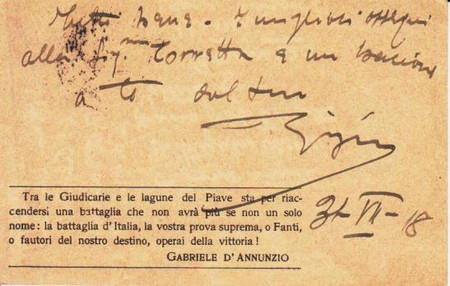 alla Sig.na Torretta e un bacione
a te dal tuo
Gigi
31-VI-18
Tra le Giudicarie e le lagune del Piave sta per riac-
cendersi una battaglia che non avrà più se non un solo
nome: la battaglia d'Italia, la vostra prova suprema, o Fanti,
o fautori del nostro destino, operai della vittoria!
GABRIELE D'ANNUNZIO